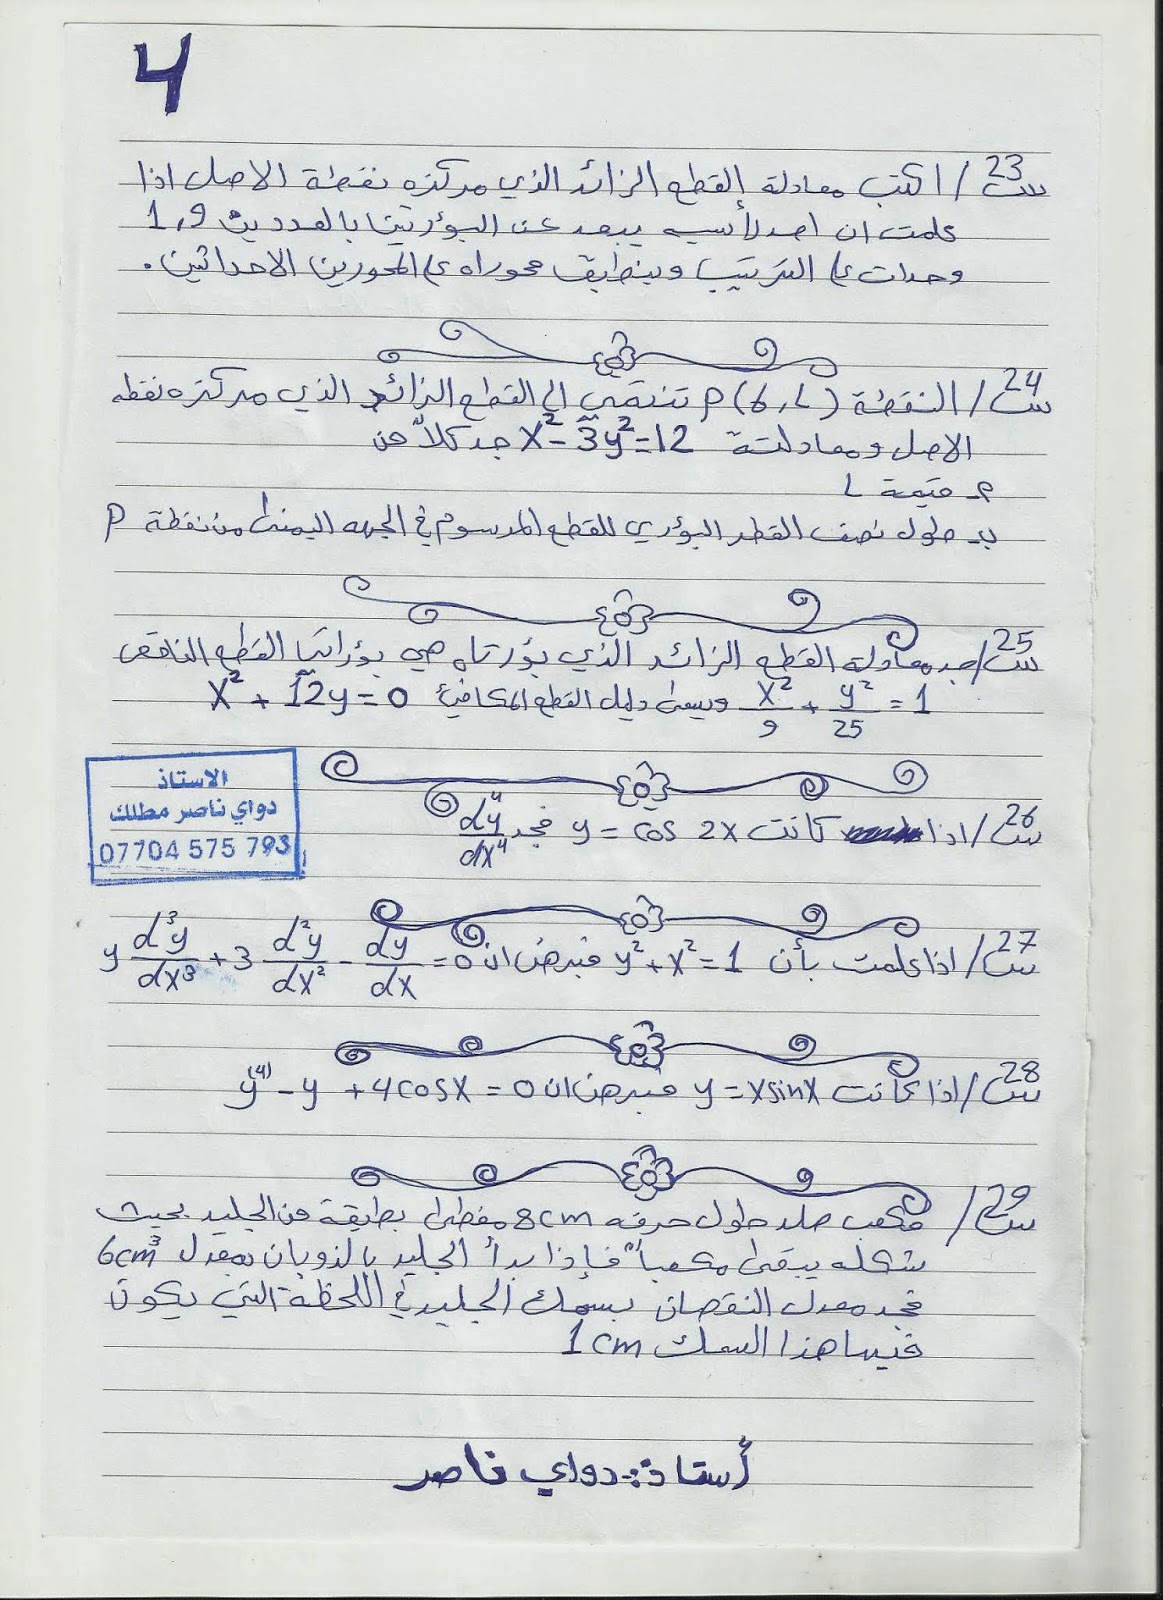 4
س23/ اكتب معادلة القطع الزائد الذي مركزه نقطة الاصل اذا
علمت ان احد رأسيه يبعد عن البؤرتين بالعددين 1,9
وحدات على الترتيب وينطبق محوراه على المحورين الاحداثيين.
س24/ النقطة P(6,L) تنتمي الى القطع الزائد الذي مركزه نقطه
الاصل ومعادلتة x²-3y²=12 جد كلاً من
أ- قيمة L
ب- طول نصف القطر البؤري للقطع المرسوم في الجهه اليمنى من نقطة P
س25/ جد معادلة القطع الزائد الذي بؤرتاه هي بؤرتا القطع الناقص
x²/9 + y²/25 = 1 ويمس دليل القطع المكافئ x² + 12y = 0
الاستاذ
دواي ناصر مطلك
07704 575 793
س26/ اذا كانت y = cos 2x فجد d⁴y/dx⁴
س27/ اذا علمت بأن y²+x²=1 فبرهن ان y d³y/dx³ + 3 d²y/dx² - dy/dx = 0
س28/ اذا كانت y=xsinx فبرهن ان y⁽⁴⁾ - y + 4cosx = 0
س29/ مكعب صلد طول حرفه 8cm مغطى بطبقة من الجليد بحيث
شكله يبقى مكعباً فإذا بدأ الجليد بالذوبان بمعدل 6cm³
فجد معدل النقصان بسمك الجليد في اللحظة التي يكون
فيها هذا السمك 1cm
أستاذ:- دواي ناصر